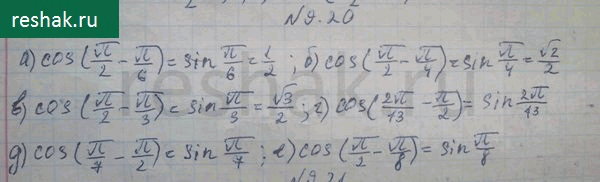 reshak.ru
N9.20
а) cos(π/2 - π/6) = sin π/6 = 1/2 ; б) cos(π/2 - π/4) = sin π/4 = √2/2
в) cos(π/2 - π/3) = sin π/3 = √3/2 ; г) cos(2π/13 - π/2) = sin 2π/13
д) cos(π/7 - π/2) = sin π/7 ; е) cos(π/2 - π/8) = sin π/8
N9.21